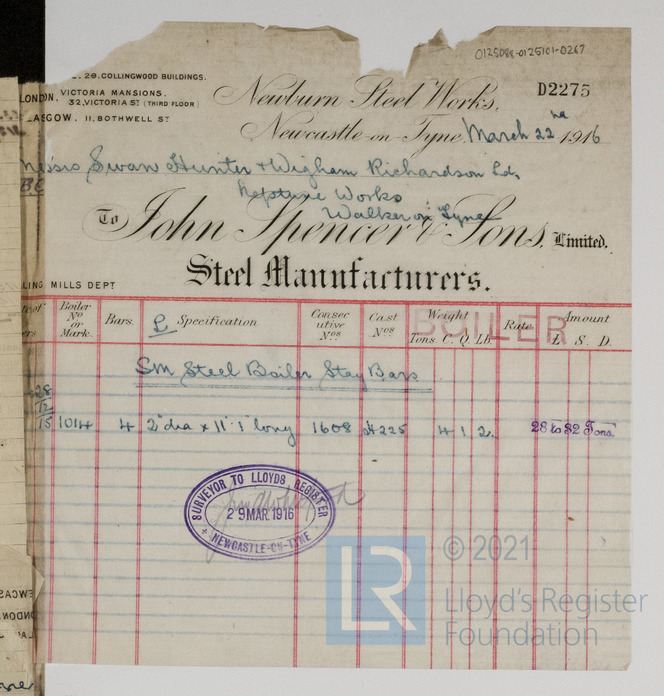 0125088-0125101-0267
28. COLLINGWOOD BUILDINGS.
LONDON. VICTORIA MANSIONS.
32, VICTORIA ST (THIRD FLOOR)
LASGOW. 11, BOTHWELL ST
D2275
Newburn Steel Works,
Newcastle-on-Tyne, March 22nd 1916
Messrs Swan Hunter & Wigham Richardson Ld,
Neptune Works
Walker on Tyne
To John Spencer & Sons, Limited.
Steel Manufacturers.
LING MILLS DEPT
Boiler Nº or Mark. Bars. £ Specification Consecutive Nºs Cast Nºs Weight Tons. C. Q. LB. Rate Amount £. S. D.
BOILER
SM Steel Boiler Stay Bars
28
12
15 1014 4 2" dia x 11' 1" long 1608 H225 4 1 2 28 to 32 Tons.
SURVEYOR TO LLOYDS REGISTER
29 MAR. 1916
NEWCASTLE-ON-TYNE
LR
© 2021
Lloyd's Register
Foundation